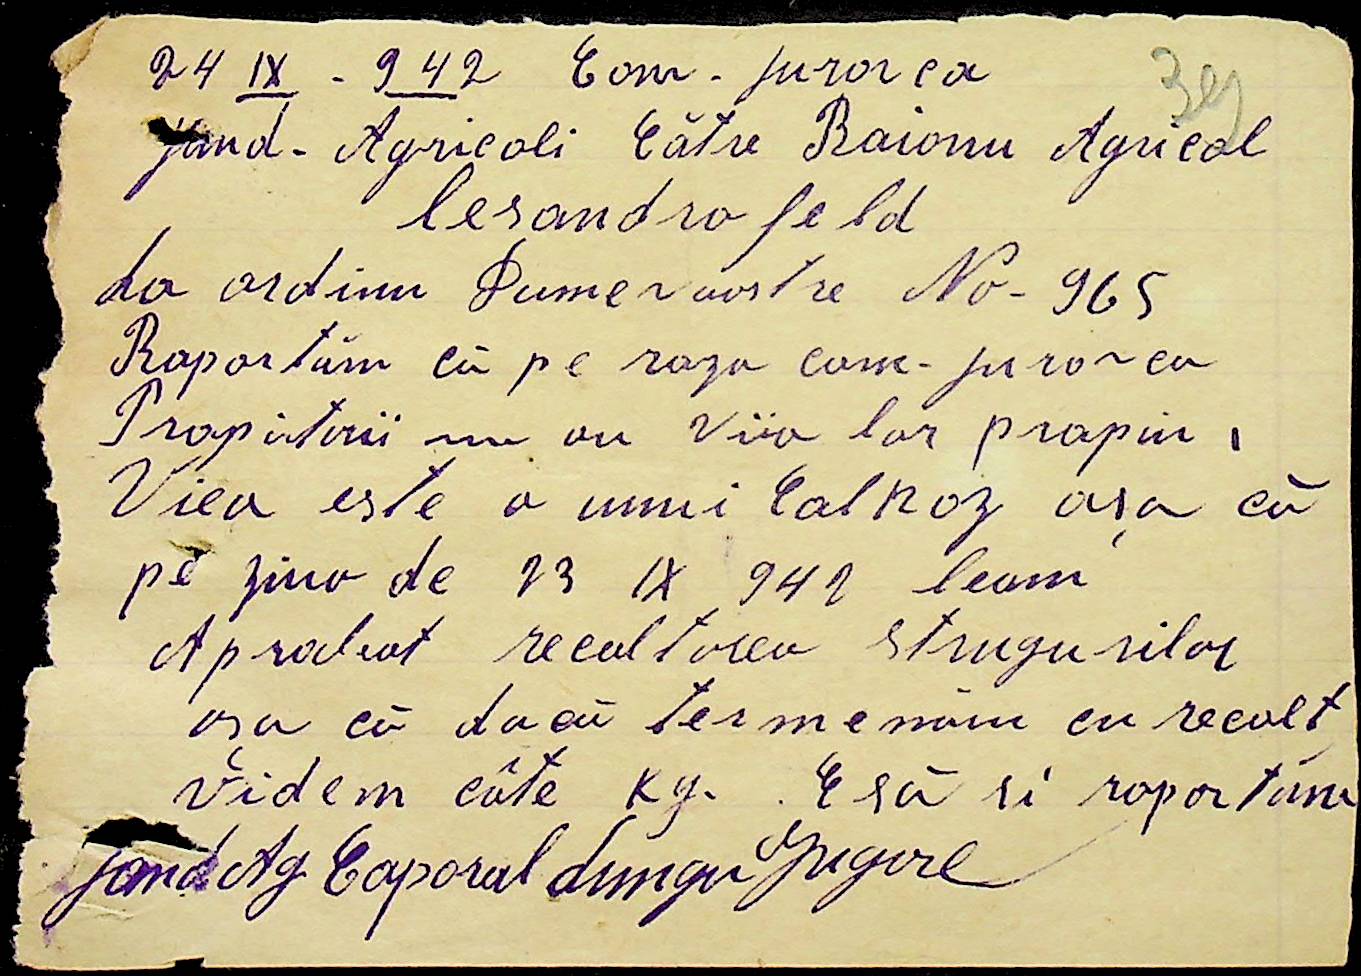 24 IX - 942 Com. jurovca
jand. Agricoli Către Raionu Agricol
lesandrofeld
La ordinu Dumevuostre No - 965
Raportăm că pe raza com. jurovca
Propătorii nu au viia lor propiu,
Viea este a unui Calhoz așa că
pe ziua de 23 IX 942 leam
Aprobat recoltarea strugurilor
așa că dacă termenăm cu recolt
videm câte kg. Esă si raportăm
jand Ag Caporal Lungu Grigore